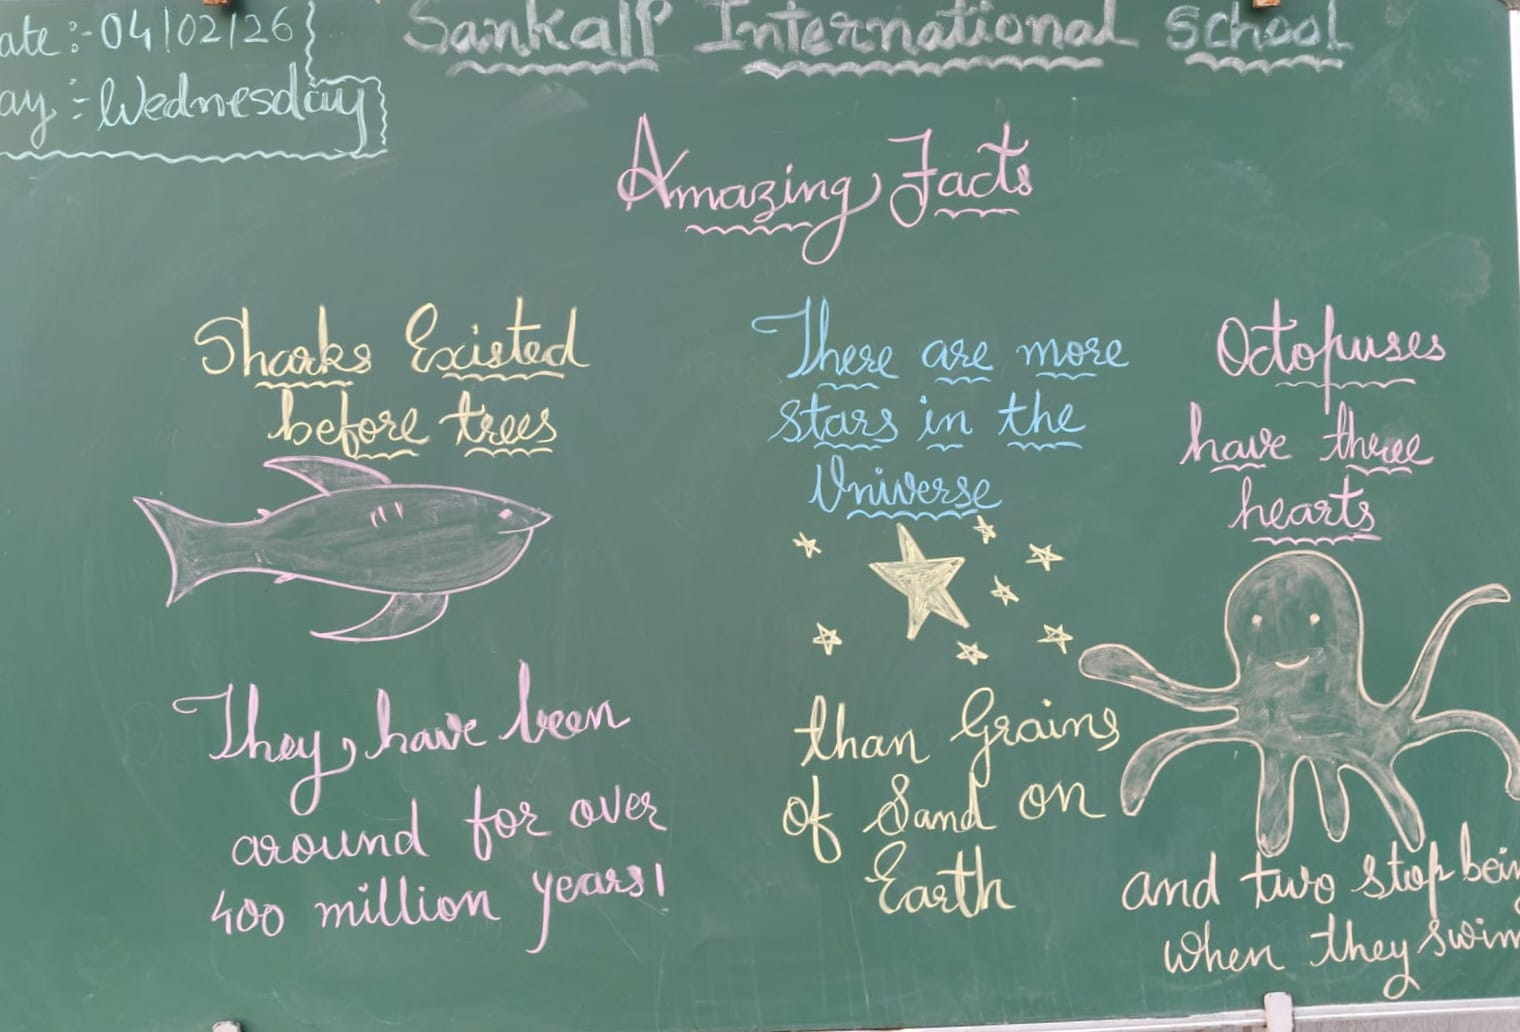 ate :- 04/02/26
Sankalp International School
ay :- Wednesday
Amazing Facts
Sharks Existed
before trees
They have been
around for over
400 million years!
There are more
stars in the
Universe
than Grains
of Sand on
Earth
Octopuses
have three
hearts
and two stop bein
when they swim